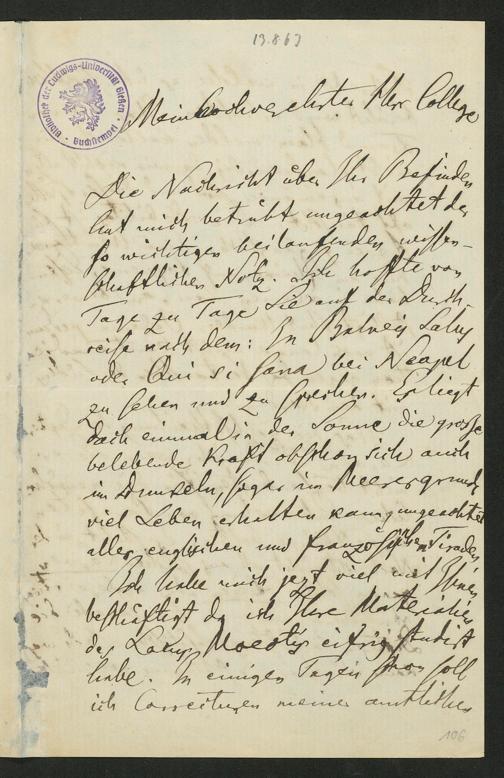 13.8.63
Bibliothek der Ludwigs-Universität Gießen · Buchstempel ·
Mein hochverehrter Herr College
Die Nachricht über Ihr Befinden
hat mich betrübt ungeachtet der
so wichtigen beilaufenden wissen-
schaftlichen Notiz. Ich hoffte von
Tage zu Tage Sie auf der Durch-
reise nach dem: In Balneis Salus
oder Qui si sana bei Neapel
zu sehen und zu sprechen. Es liegt
doch einmal in der Sonne die große
belebende Kraft obschon sich auch
im Dunkeln, sogar im Meeresgrund
viel Leben erhalten kann ungeachtet
aller englischen und französischen Tiraden
Ich habe mich jezt viel mit Ihnen
beschäftigt da ich Ihre Materialien
des Lacus Moeotis eifrig studirt
habe. In einigen Tagen schon soll
ich Correcturen meiner amtlichen
106